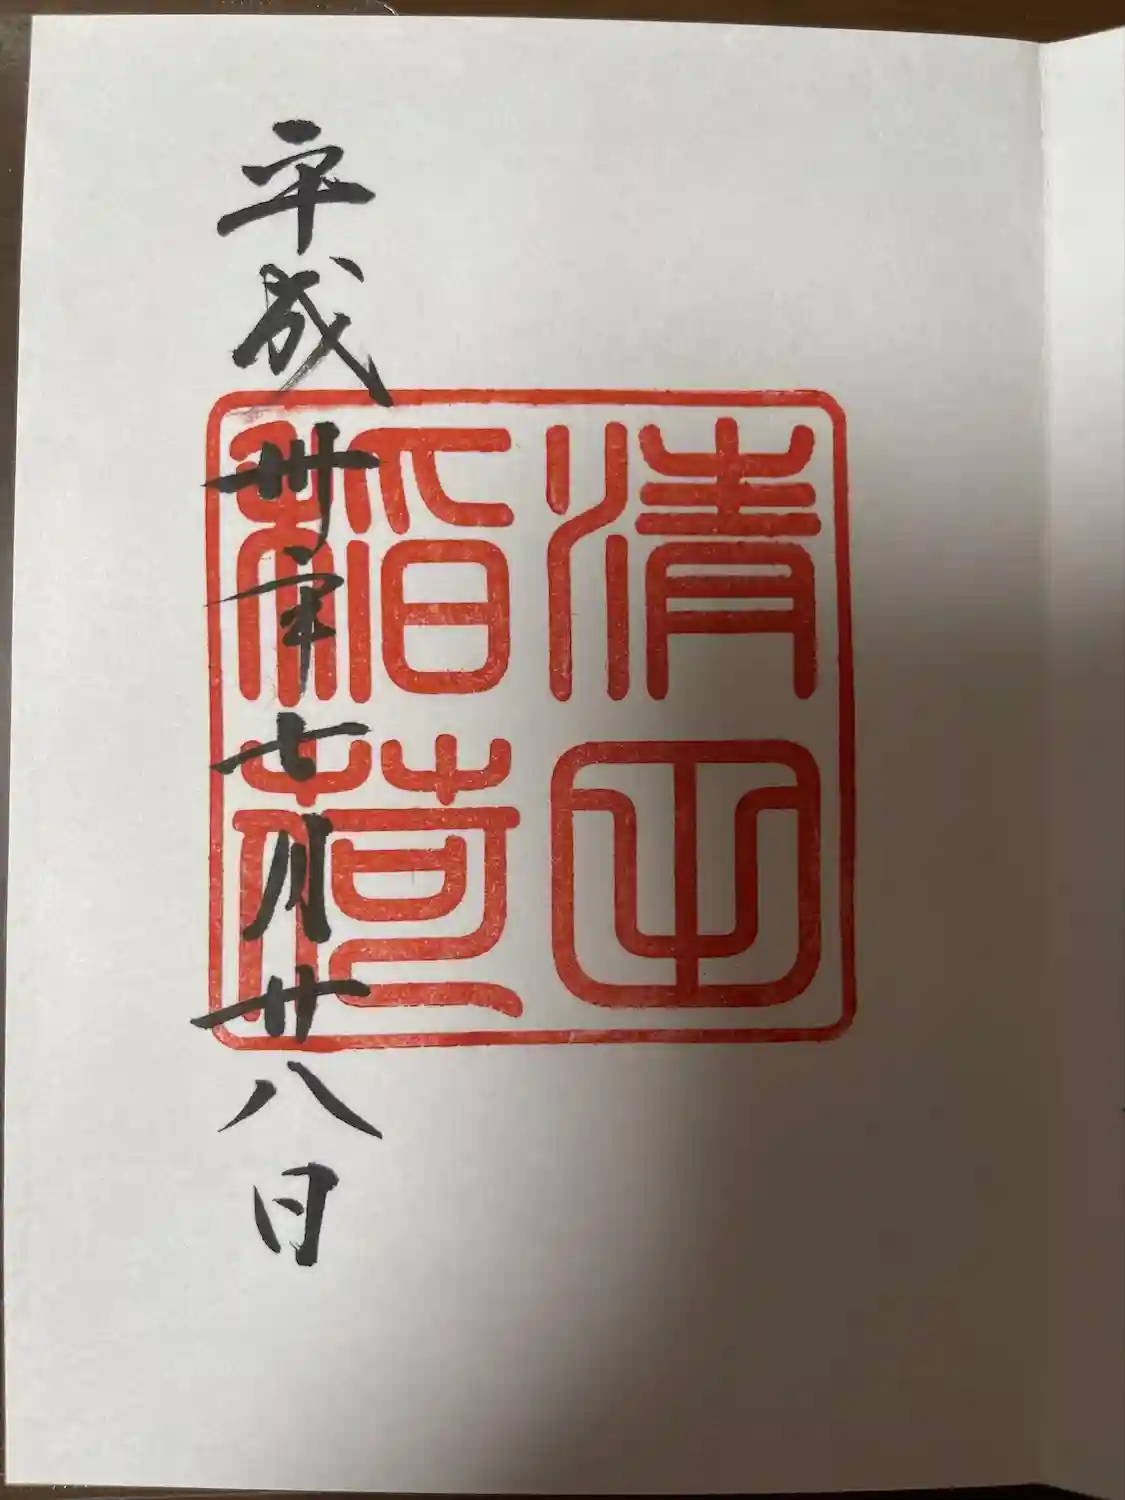 清田
稲荷
平成卅年七月廿八日